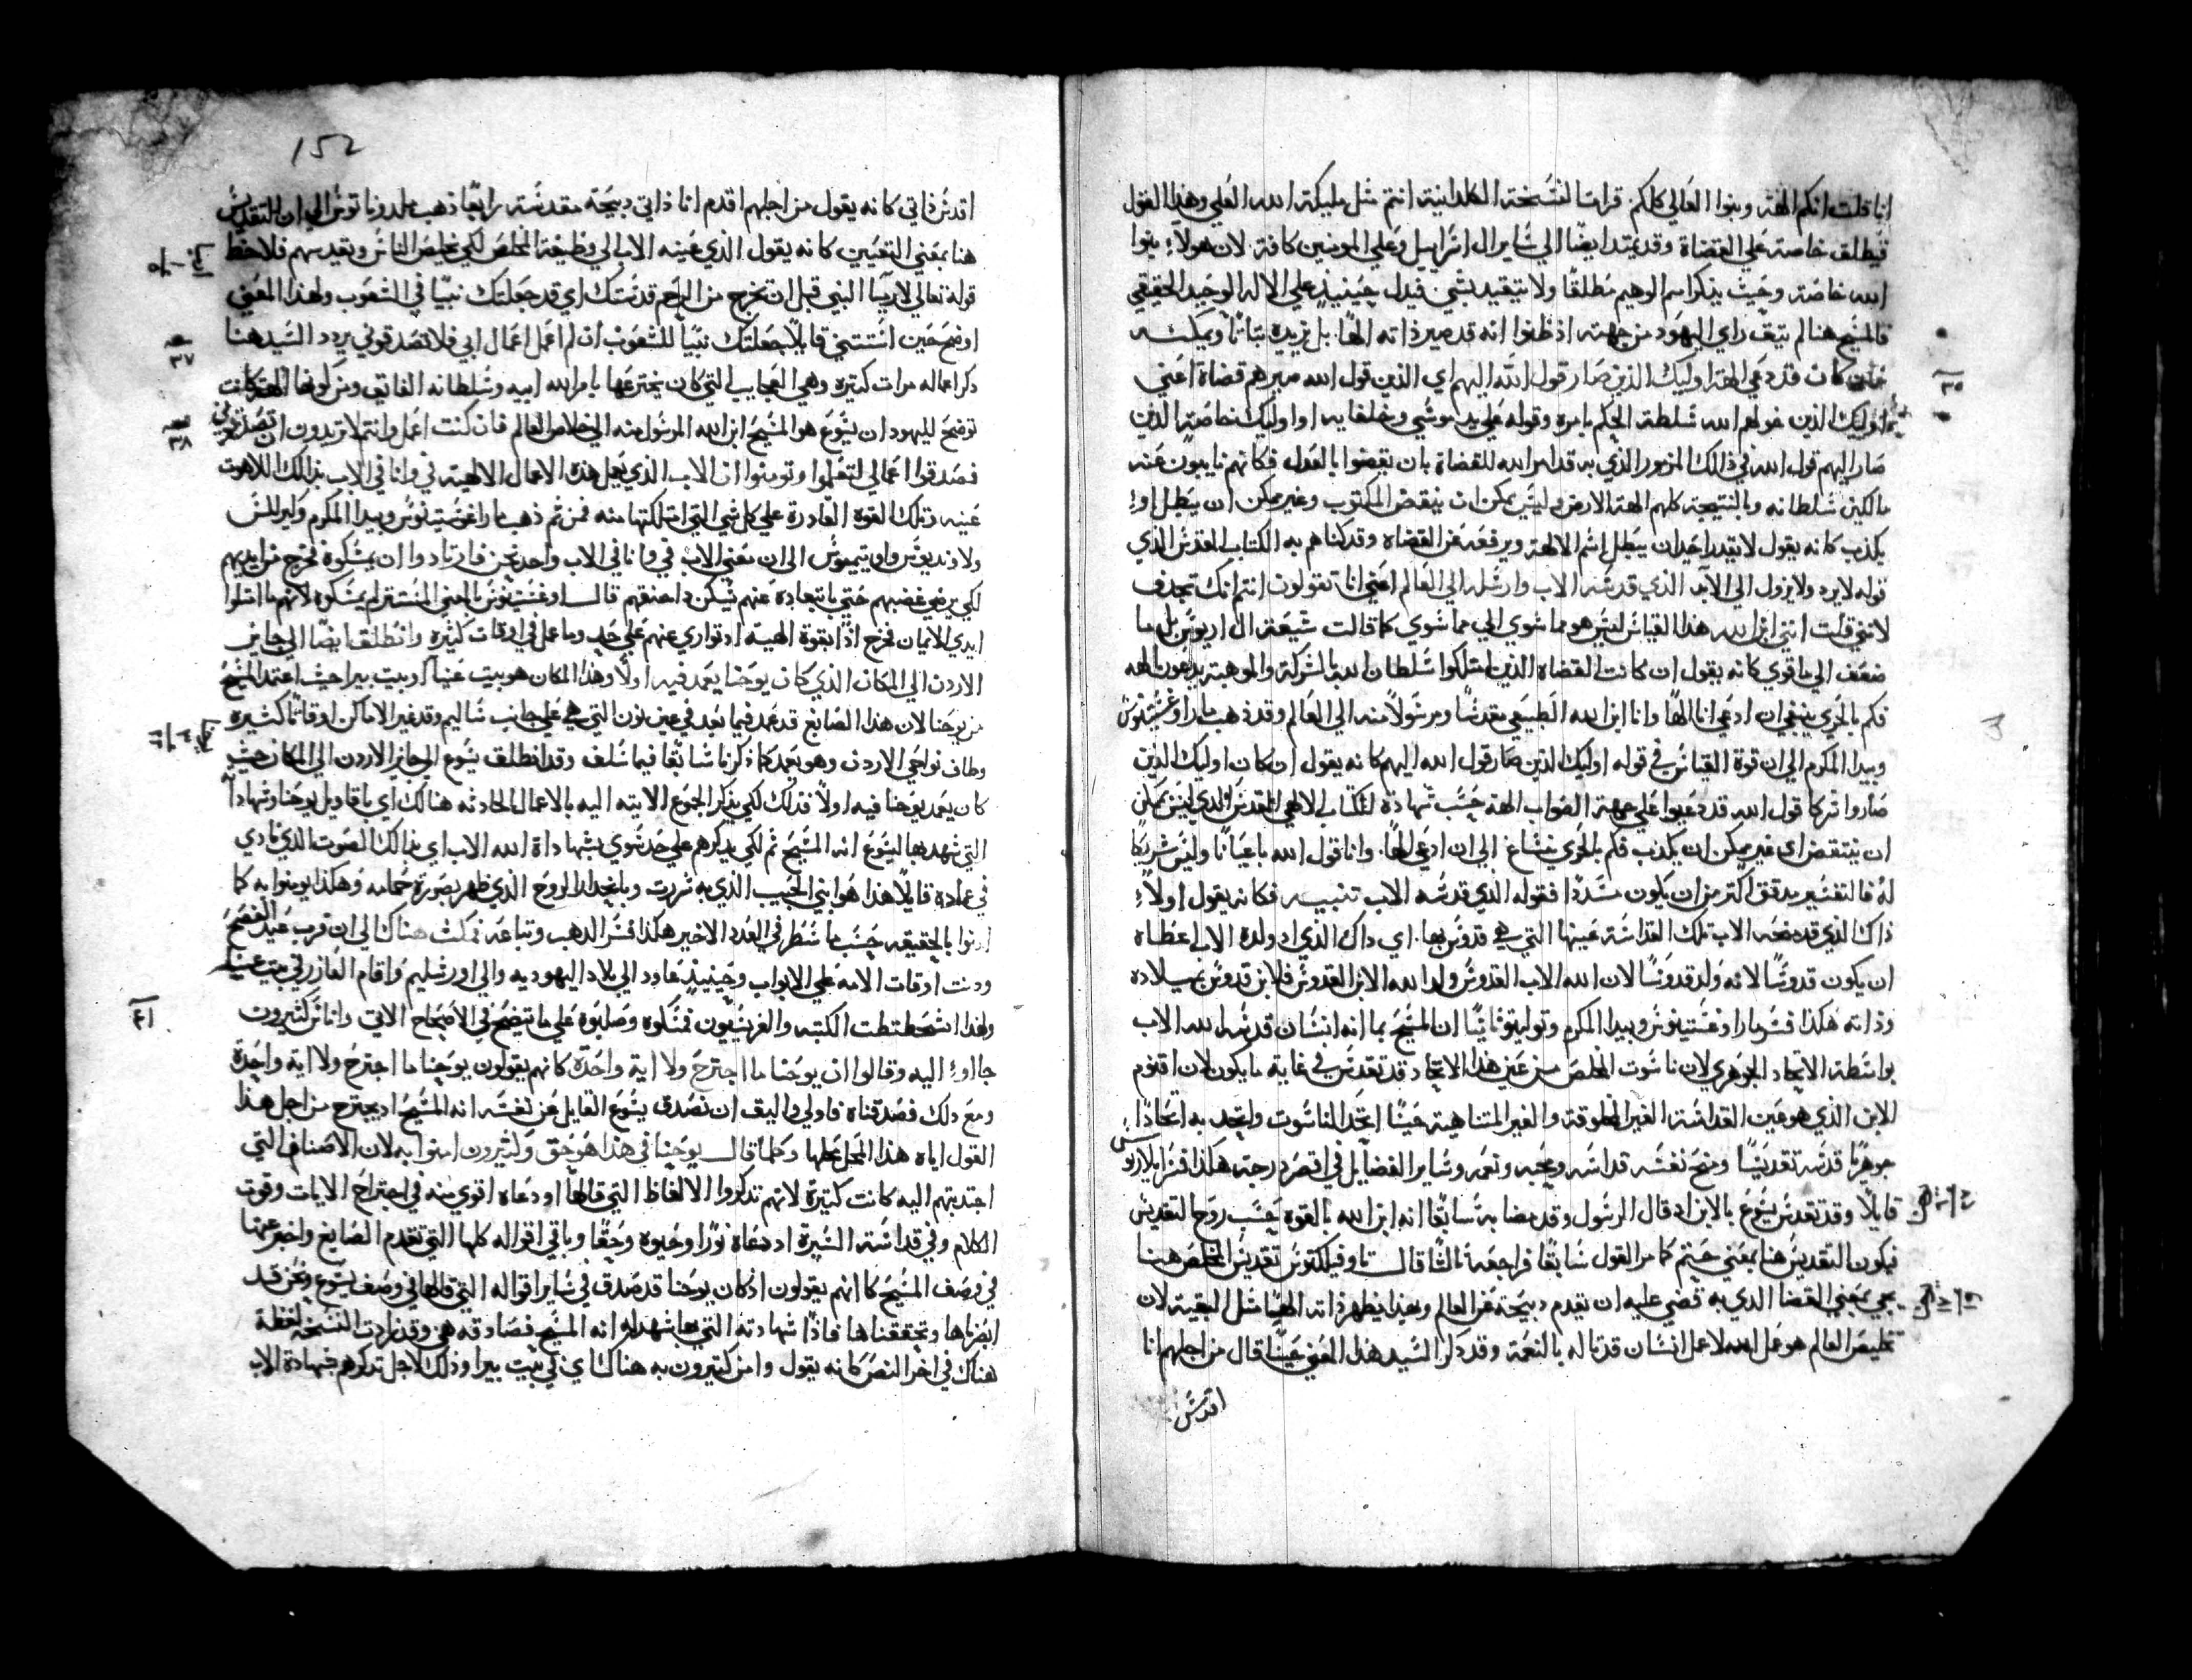 انا قلت انكم الهة وبنوا العالي كلكم قرات النسخة الكلدانية انتم مثل مليكة الله العلي وهذا القول
فيطلق خاصة علي القضاة وقد يمتد ايضًا الي ساير ال اسراييل وعلي المومنين كافة لان هولاء بنوا
الله خاصة وحيث يذكر اسم الوهيم مطلقًا ولا يتقيد بشي فيدل حينيذٍ علي الاله الوحيد الحقيقي
فالمسيح هنا لم ينف راي اليهود من جهته اذ ظنوا انه قد صير ذاته الهًا بل يزيده بتاتًا ويمكنه
٣٥
فان كان قد دعي الهة اوليك الذين صار قول الله اليهم اي الذين قول الله صيرهم قضاة اعني
اوليك الذين خولهم الله سلطة الحكم بامره وقوله علي يد موسي وخلفايه او اوليك خاصة الذين
صار اليهم قول الله في ذلك المزمور الذي به قد امر الله للقضاة بان يقضوا بالعدل فكانهم نايبون عنه
مالكين سلطانه وبالنتيجة كلهم الهة الارض وليس يمكن ان ينقض المكتوب وغير ممكن ان يبطل او
يكذب كانه يقول لا يقدر احد ان يبطل اسم الالهة ويرفعه عن القضاه وقد كناهم به الكتاب المقدس الذي
قوله لا يرد ولا يزول الي الابد الذي قدسه الاب وارسله الي العالم اعني انا تقولون انتم انك تجدف
لانني قلت انني ابن الله هذا القياس ليس هو مما سوي الي مما سوي كما قالت شيعة ال اريوس بل مما
ضعف الي ما قوي كانه يقول ان كانت القضاه الذين امتلكوا سلطان الله بالشركة والموهبة يدعون الهه
فكم بالحري ينبغي ان ادعي انا الهًا وانا ابن الله الطبيعي مقدسًا ومرسولاً منه الي العالم وقد ذهب ماراوغسطينوس
وبيدا المكرم الي ان قوة القياس في قوله اوليك الذين صار قول الله اليهم كانه يقول ان كان اوليك الذين
صاروا شركا قول الله قد دعيوا علي جهة الصواب الهة حسب شهادة الكتاب الالهي المقدس الذي ليس يمكن
ان ينتقض اي غير ممكن ان يكذب فكم بالحري ينساغ الي ان ادعي الهًا وانا قول الله باعيانًا وليس شريكا
له فالتفسير مدقق اكثر من ان يكون مسددًا فقوله الذي قدسه الاب تنبيه فكانه يقول اولاً
ذاك الذي قد منحه الاب تلك القداسة عينها التي هي قدوس بها اي ذاك الذي اذ ولده الاب اعطاه
ان يكون قدوسًا لانه ولد قدوسًا لان الله الاب القدوس ولد الله الابن القدوس فلابن قدوس بميلاده
وذاته هكذا فسر ماراوغسطينوس وبيدا المكرم وتوليتو ثانيًا ان المسيح بما انه انسان قدسه الله الاب
بواسطة الاتحاد الجوهري لان ناسوت المخلص من عين هذا الاتحاد قد تقدس في غاية ما يكون لان اقنوم
الابن الذي هو عين القداسة الغير المخلوقة والغير المتناهية عينًا اتخذ الناسوت واتحد به اتحادًا
جوهريًا قدسه تقديسًا ومنح نفسه قداسه ومحبه ونعمه وساير الفضايل في اقصي درجه هكذا فسر ايلاريوس
قايلاً وقد تقدس يسوع بالابن اذ قال الرسول وقد مضا به سابقًا انه ابن الله بالقوه حسب روح التقديس
فيكون التقديس هنا بمعني ختم كما مر القول سابقًا فراجعه ثالثًا قال تاوفيلكتوس تقديس المخلص هنا
يجي بمعني القضا الذي به قضي عليه ان يقدم ذبيحة عن العالم وبهذا يظهر ذاته الهًا مثل البقية لان
تخليص العالم هو عمل الله لا عمل انسان قد تاله بالنعمة وقد ذكر السيد هذا المعني عينًا قال من اجلهم انا
اقدس
152
اقدس ذاتي كانه يقول من اجلهم اقدم انا ذاتي ذبيحة مقدسة رابعًا ذهب ملدوناتوس الي ان التقديس
هنا بمعني التعيين كانه يقول الذي عينه الاب الي وظيفة المخلص لكي يخلص الناس ويقدسهم فلاحظ
قوله تعالي لارميا النبي قبل ان تخرج من الرحم قدستك اي قد جعلتك نبيًا في الشعوب ولهذا المعني
اوضح حين استتني قايلاً جعلتك نبيًا للشعوب ان لم اعمل اعمال ابي فلا تصدقوني يردد السيد هنا
٣٧
ذكر اعماله مرات كثيرة وهي العجايب التي كان يخترعها بامر الله ابيه وسلطانه الفايق ومن كونها الهية كانت
توضح لليهود ان يسوع هو المسيح ابن الله المرسول منه الي خلاص العالم فان كنت اعمل وانتم لا تريدون ان تصدقوني
٣٨
فصدقوا اعمالي لتعلموا وتومنوا ان الاب الذي يعمل هذه الاعمال الالهية في وانا في الاب بذالك اللاهوت
عينه وتلك القوة القادرة علي كل شي التي امتلكتها منه فمن ثم ذهب ماراغوسطينوس وبيدا المكرم وكيرللس
ولاونديوس واوتيميوس الي ان معني الاب في وانا في الاب واحد نحن فارتادوا ان يمسكوه فخرج من ايديهم
لكي يرضي غضبهم حتي بابتعاده عنهم تسكن حنقهم قال اوغسطينوس بالمعني المستتر لم يمسكوه لانهم ما امتلوا
ايدي الايمان فخرج اذًا بقوة الهية اذ تواري عنهم علي حد وما عمل في اوقات كثيره وانطلق ايضًا الي جايز
الاردن الي المكان الذي كان يوحنا يعمد فيه اولاً وهذا المكان هو بيت عنيا او بيت بيرا حيث اعتمد المسيح
من يوحنا لان هذا الصابغ قد عمد فيما بعد في عين نون التي هي علي جانب ساليم وقد غير الاماكن اوقاتًا كثيره
وطاف نواحي الاردن وهو يعمد كما ذكرنا سابقًا فيما سلف وقد انطلق يسوع الي جايز الاردن الي المكان حيث
كان يعمد يوحنا فيه اولاً فذلك لكي يذكر الجموع الاتيه اليه بالاعمال الحادثه هنالك اي باقاويل يوحنا وشهاداته
التي شهد بها ليسوع انه المسيح ثم لكي يذكرهم علي حد سوي بشهاداة الله الاب اي بذالك الصوت الذي نادي
في عماده قايلاً هذا هو ابني الحبيب الذي به سررت وبانحدار الروح الذي ظهر بصورة حمامه وهكذا يومنوا به كما
امنوا بالحقيقه حسب ما سطر في العدد الاخير هكذا فسر الذهب وتباعه فمكث هناك الي ان قرب عيد الفصح
ودنت اوقات الامه علي الابواب وحينيذٍ عاود الي بلاد اليهوديه والي اورشليم واقام العازر في بيت عنيا
ولهذا اشحططت الكتبه والفريسيون فمسكوه وصلبوه علي ما يتضح في الاصحاح الاتي واناس كثيرون
٤١
جااوا اليه وقالوا ان يوحنا ما اجترح ولا اية واحدة كانهم يقولون يوحنا ما اجترح ولا اية واحدة
ومع ذلك فصدقناه فاولي واليق ان نصدق يسوع القايل عن نفسه انه المسيح اذ يجترح من اجل هذا
القول اياه هذا المحل محلها وكلما قال يوحنا في هذا هو حق وكثيرون امنوا به لان الاصناف التي
اجتدبتهم اليه كانت كثيرة لانهم تذكروا الالفاظ التي قالها اذ دعاه اقوي منه في اجتراح الايات وقوت
الكلام وفي قداسة السيرة اذ دعاه نورًا وحيوه وحقًا وباقي اقواله كلها التي تقدم الصابغ واخبر عنها
في وصف المسيح كانهم يقولون اذ كان يوحنا قد صدق في ساير اقواله التي قالها في وصف يسوع ونحن قد
ابصرناها وتحققناها فاذًا شهادته التي بها شهد له انه المسيح فصادقه هي وقد زادت النسخة لفظة
هناك في اخر النص كانه يقول وامن كثيرون به هناك اي في بيت بيرا وذلك لاجل تذكرهم شهادة الاب